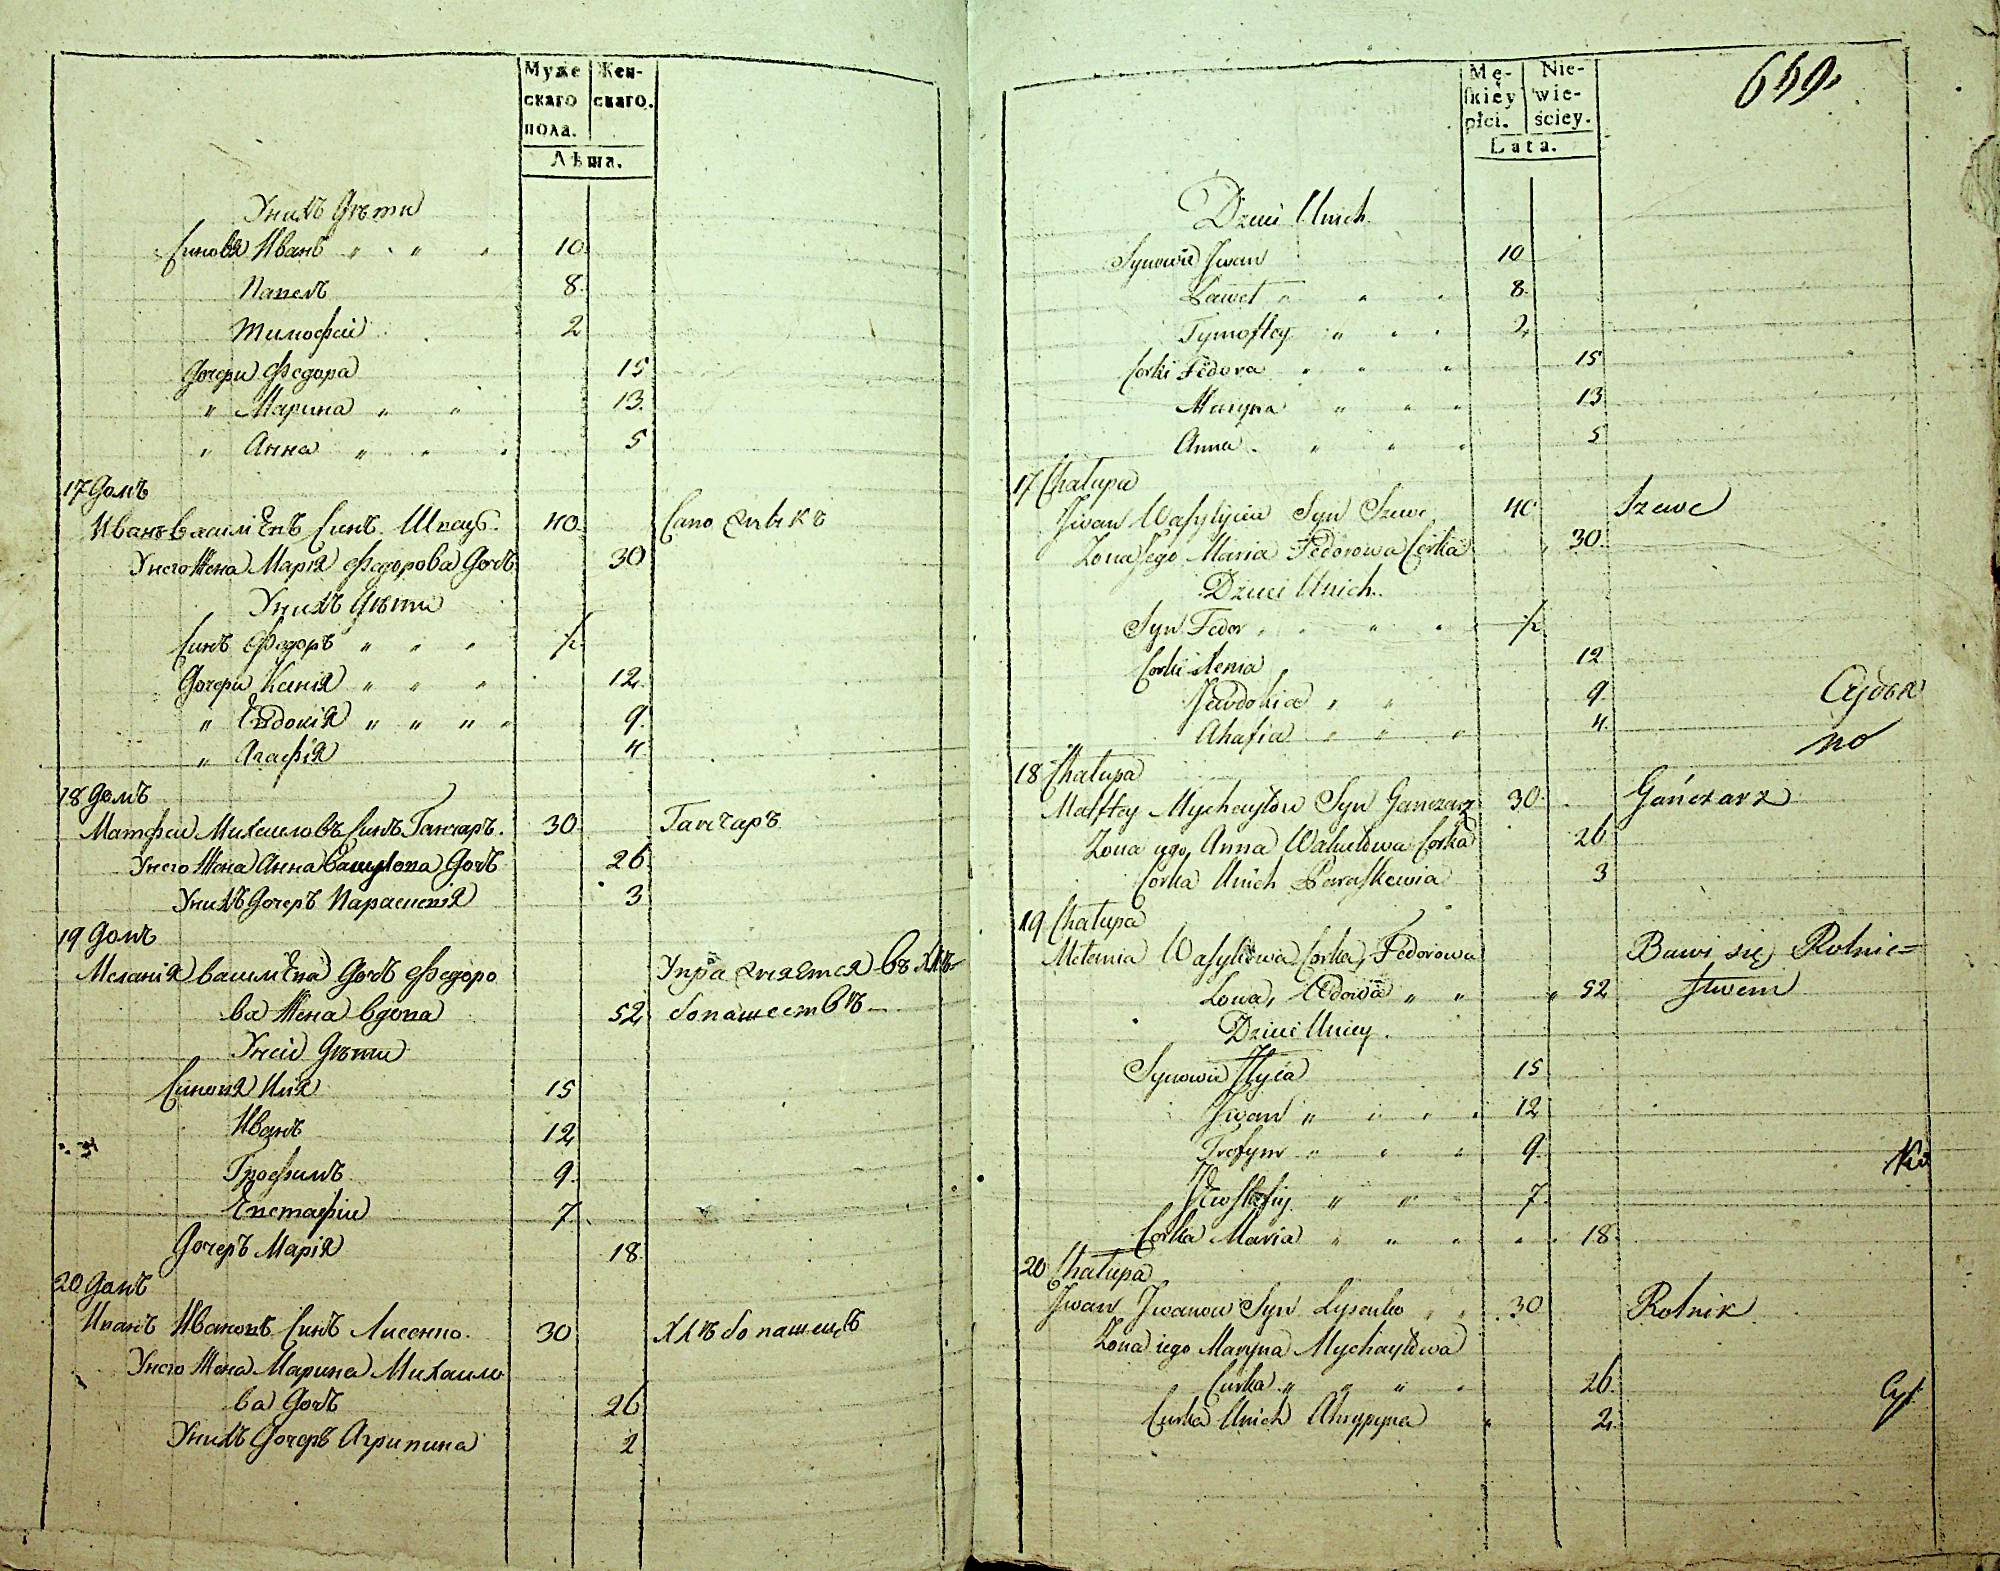 Муже
скаго
пола.
Жен-
скаго.
Лѣта.
Унихъ дѣти
Синовя Иванъ " " " 10
Павелъ 8
Тимофей 2
Дочери Федора 15
" Марина " " 13
" Анна " " " 5
17 Домъ
Иванъ Василіевъ Синъ Швецъ. 40 Сапожникъ
Унего Жена Марія Федорова Дочь 30
Унихъ дѣти
Синъ Федоръ " " " ½
Дочери Ксенія " " " 12
" Евдокія " " " " 9
" Агафія 4
18 Домъ
Матфеи Михаиловъ Синъ Ганчаръ. 30 Ганчаръ
Унего Жена Анна Дочь 26
Унихъ Дочеръ Параскевія 3
19 Домъ
Меланія Василіева Дочь Федоро
ва Жена вдова 52
Упражняется въ хлѣ-
бопашествѣ
Унеіе Дѣти
Синовя Илія 15
Иванъ 12
Трофимъ 9
Евстафіи 7
Дочеръ Марія 18
20 Домъ
Иванъ Ивановъ Синъ Лисенко. 30 Хлѣбопашецъ
Унего Жена Марина Михаило
ва Дочь 26
Унихъ Дочеръ Агрипина 2
Mę-
skiéy
płci.
Nie-
wie-
ściey.
Lata.
659.
Dzieci Unich
Synowie Jwan 10
Paweł " " " 8
Tymofiey " " " 2
Corki Fedora " " " 15
Maryna " " " 13
Anna " " " 5
17 Chałupa
Jwan Wasylijew Syn Szewc 40 Szewc
Zona Jego Maria Fedorowa Corka 30
Dzieci Unich
Syn Fedor " " " " ½
Corki Xenia 12
Jewdokia " " 9
Ahafia " " " 4
18 Chałupa
Matftey Mychayłow Syn Ganczarz 30 Gańczarz
Zona iego Anna Corka 26
Corka Unich Paraskewia 3
19 Chałupa
Mełania Wasylowa Corka, Fedorowa
Zona, Wdowa " " " 52
Bawi się Rolnic=
stwem
Dzieci Uniey.
Synowie Ilyia 15
Jwan " " " " 12
Trofym " " " 9
Jewstafiy " " 7
Corka Maria " " " " " 18
20 Chałupa
Jwan Jwanow Syn Lysenko " " 30 Rolnik
Zona iego Maryna Mychayłowa
Curka " " " " 26
Curka Unich Ahrypyna " 2